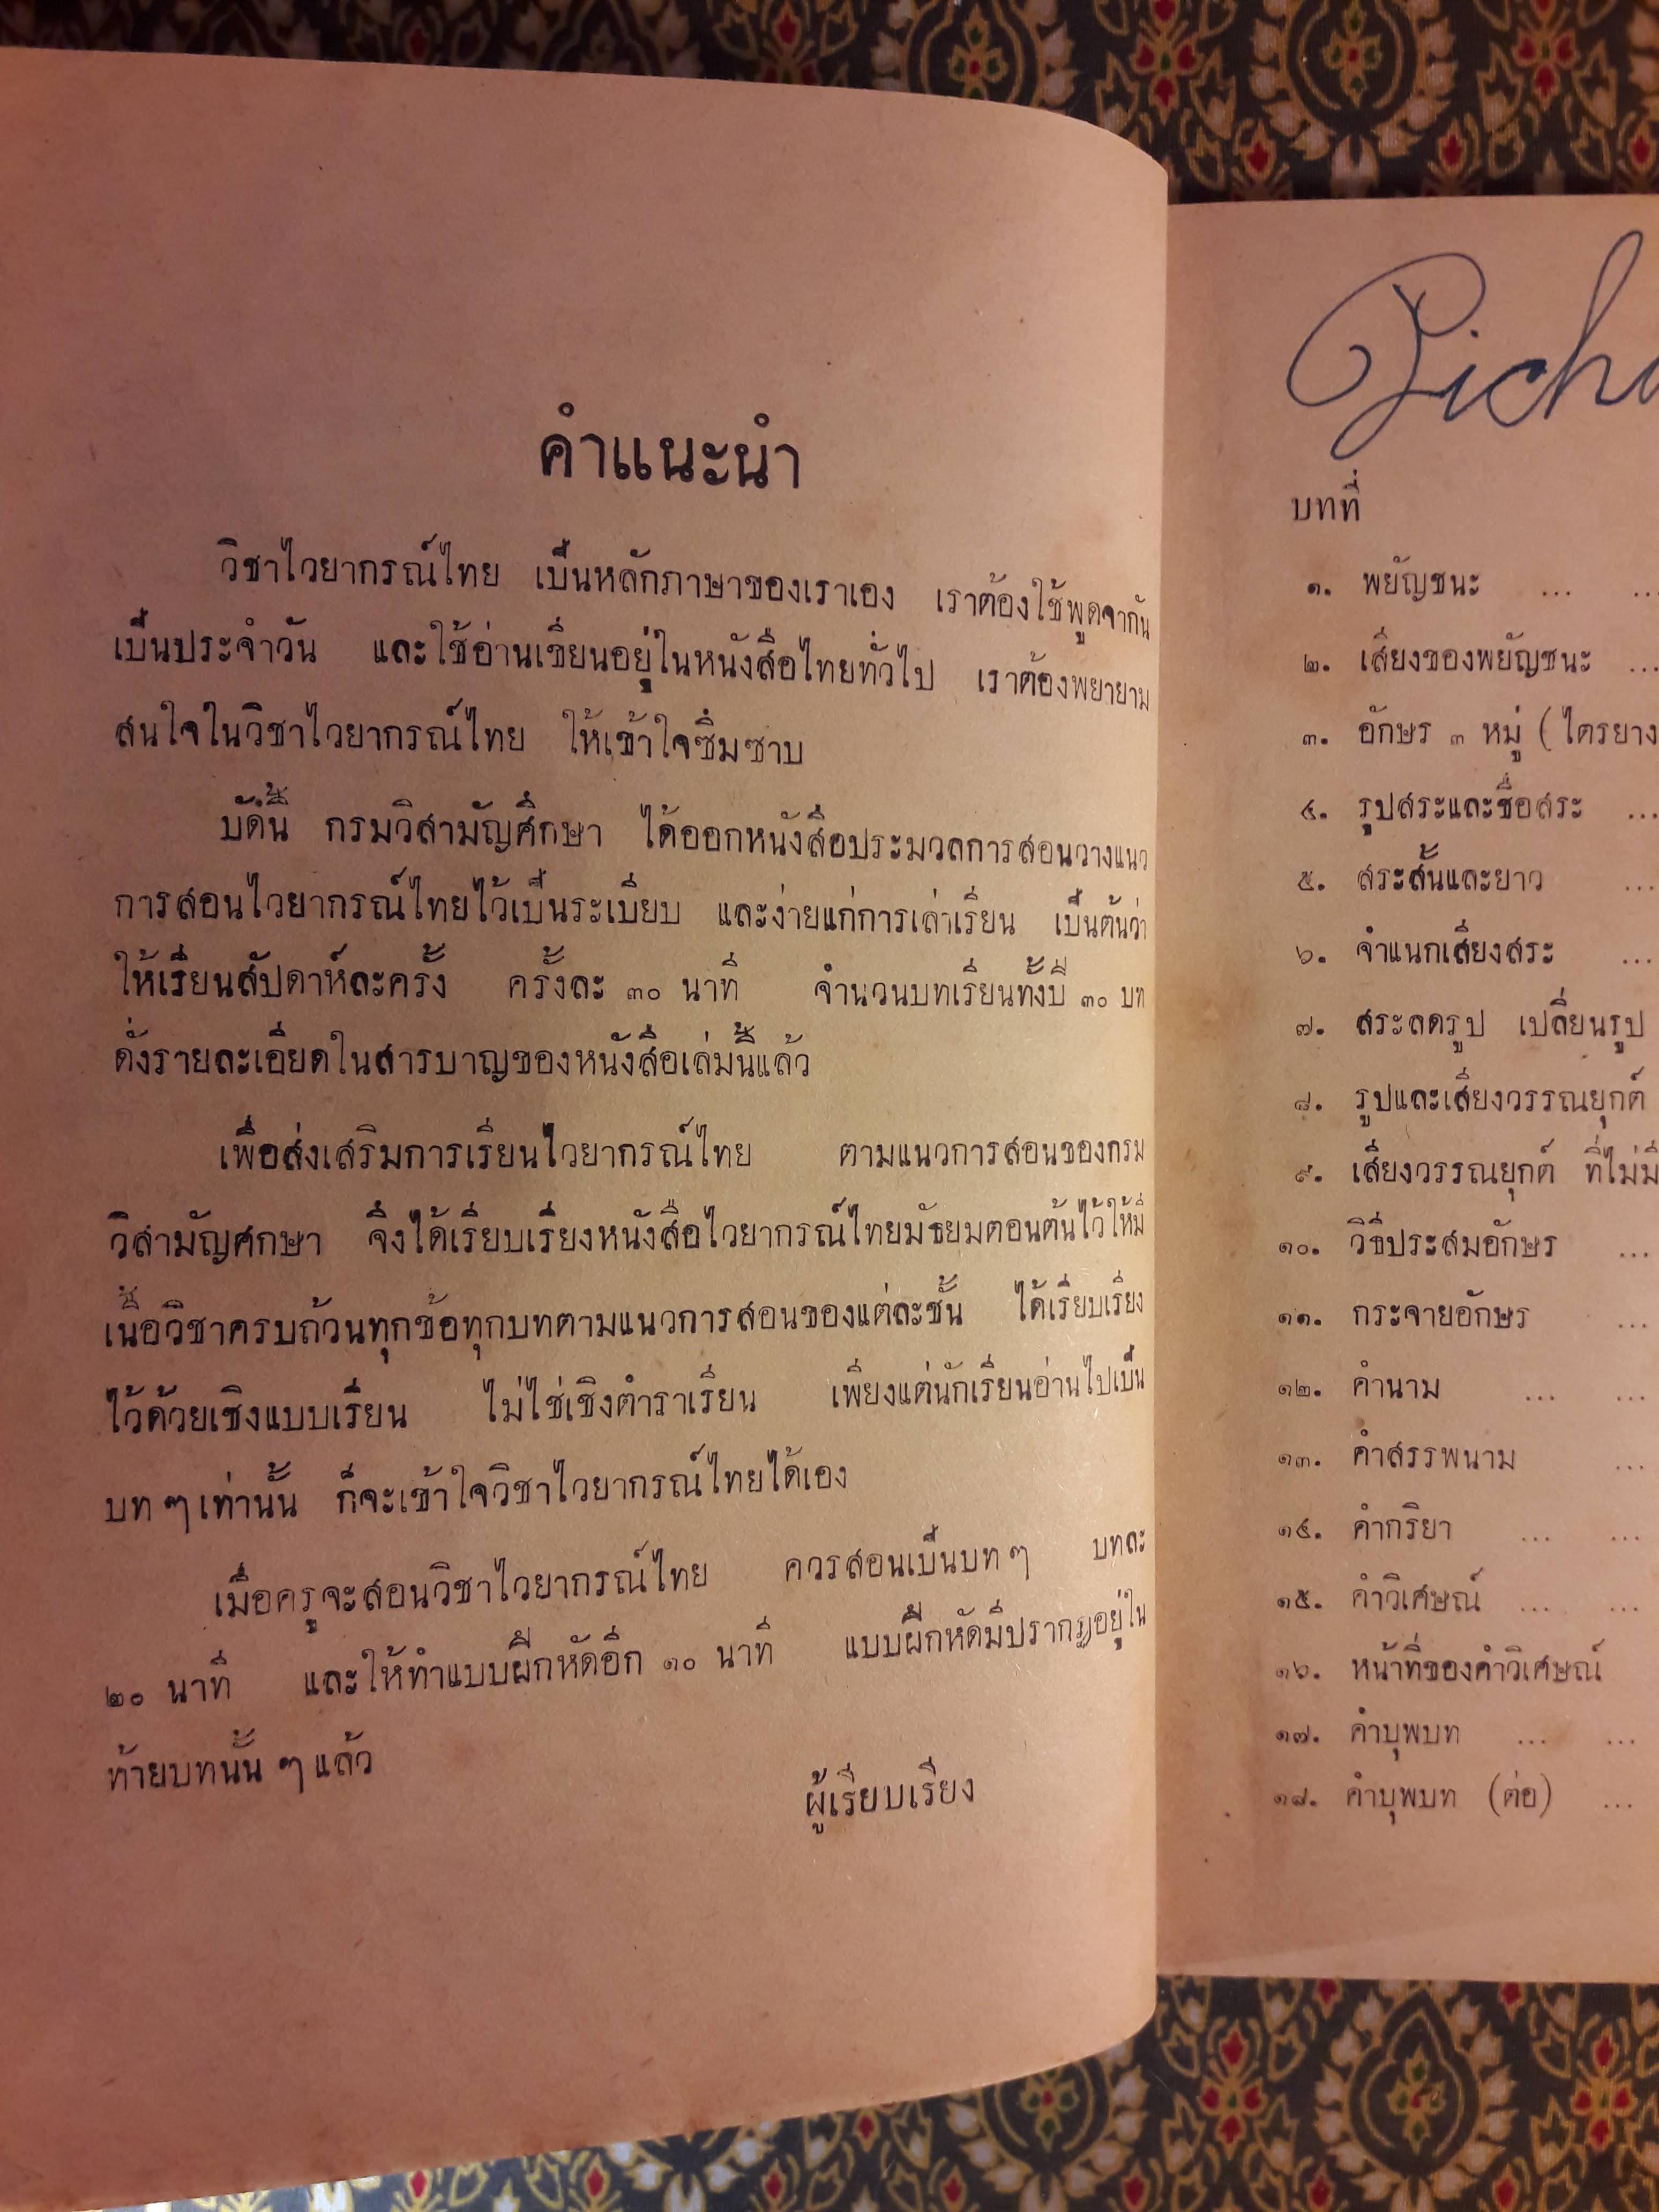 คำแนะนำ
วิชาไวยากรณ์ไทย เป็นหลักภาษาของเราเอง เราต้องใช้พูดจากัน
เป็นประจำวัน และใช้อ่านเขียนอยู่ในหนังสือไทยทั่วไป เราต้องพยายาม
สนใจในวิชาไวยากรณ์ไทย ให้เข้าใจซึมซาบ
บัดนี้ กรมวิสามัญศึกษา ได้ออกหนังสือประมวลการสอนวางแนว
การสอนไวยากรณ์ไทยไว้เป็นระเบียบ และง่ายแก่การเล่าเรียน เป็นต้นว่า
ให้เรียนสัปดาห์ละครั้ง ครั้งละ ๓๐ นาที จำนวนบทเรียนทั้งปี ๓๐ บท
ดั่งรายละเอียดในสารบาญของหนังสือเล่มนี้แล้ว
เพื่อส่งเสริมการเรียนไวยากรณ์ไทย ตามแนวการสอนของกรม
วิสามัญศึกษา จึงได้เรียบเรียงหนังสือไวยากรณ์ไทยมัธยมตอนต้นไว้ให้มี
เนื้อวิชาครบถ้วนทุกข้อทุกบทตามแนวการสอนของแต่ละชั้น ได้เรียบเรียง
ไว้ด้วยเชิงแบบเรียน ไม่ใช่เชิงตำราเรียน เพียงแต่นักเรียนอ่านไปเป็น
บท ๆ เท่านั้น ก็จะเข้าใจวิชาไวยากรณ์ไทยได้เอง
เมื่อครูจะสอนวิชาไวยากรณ์ไทย ควรสอนเป็นบท ๆ บทละ
๒๐ นาที และให้ทำแบบฝึกหัดอีก ๑๐ นาที แบบฝึกหัดมีปรากฏอยู่ใน
ท้ายบทนั้น ๆ แล้ว
ผู้เรียบเรียง
บทที่
๑. พยัญชนะ ... ...
๒. เสียงของพยัญชนะ ...
๓. อักษร ๓ หมู่ (ไตรยาง
๔. รูปสระและชื่อสระ ...
๕. สระสั้นและยาว ...
๖. จำแนกเสียงสระ ...
๗. สระลดรูป เปลี่ยนรูป
๘. รูปและเสียงวรรณยุกต์
๙. เสียงวรรณยุกต์ ที่ไม่มี
๑๐. วิธีประสมอักษร ...
๑๑. กระจายอักษร ...
๑๒. คำนาม ... ...
๑๓. คำสรรพนาม ...
๑๔. คำกริยา ... ...
๑๕. คำวิเศษณ์ ... ...
๑๖. หน้าที่ของคำวิเศษณ์
๑๗. คำบุพบท ... ...
๑๘. คำบุพบท (ต่อ) ...